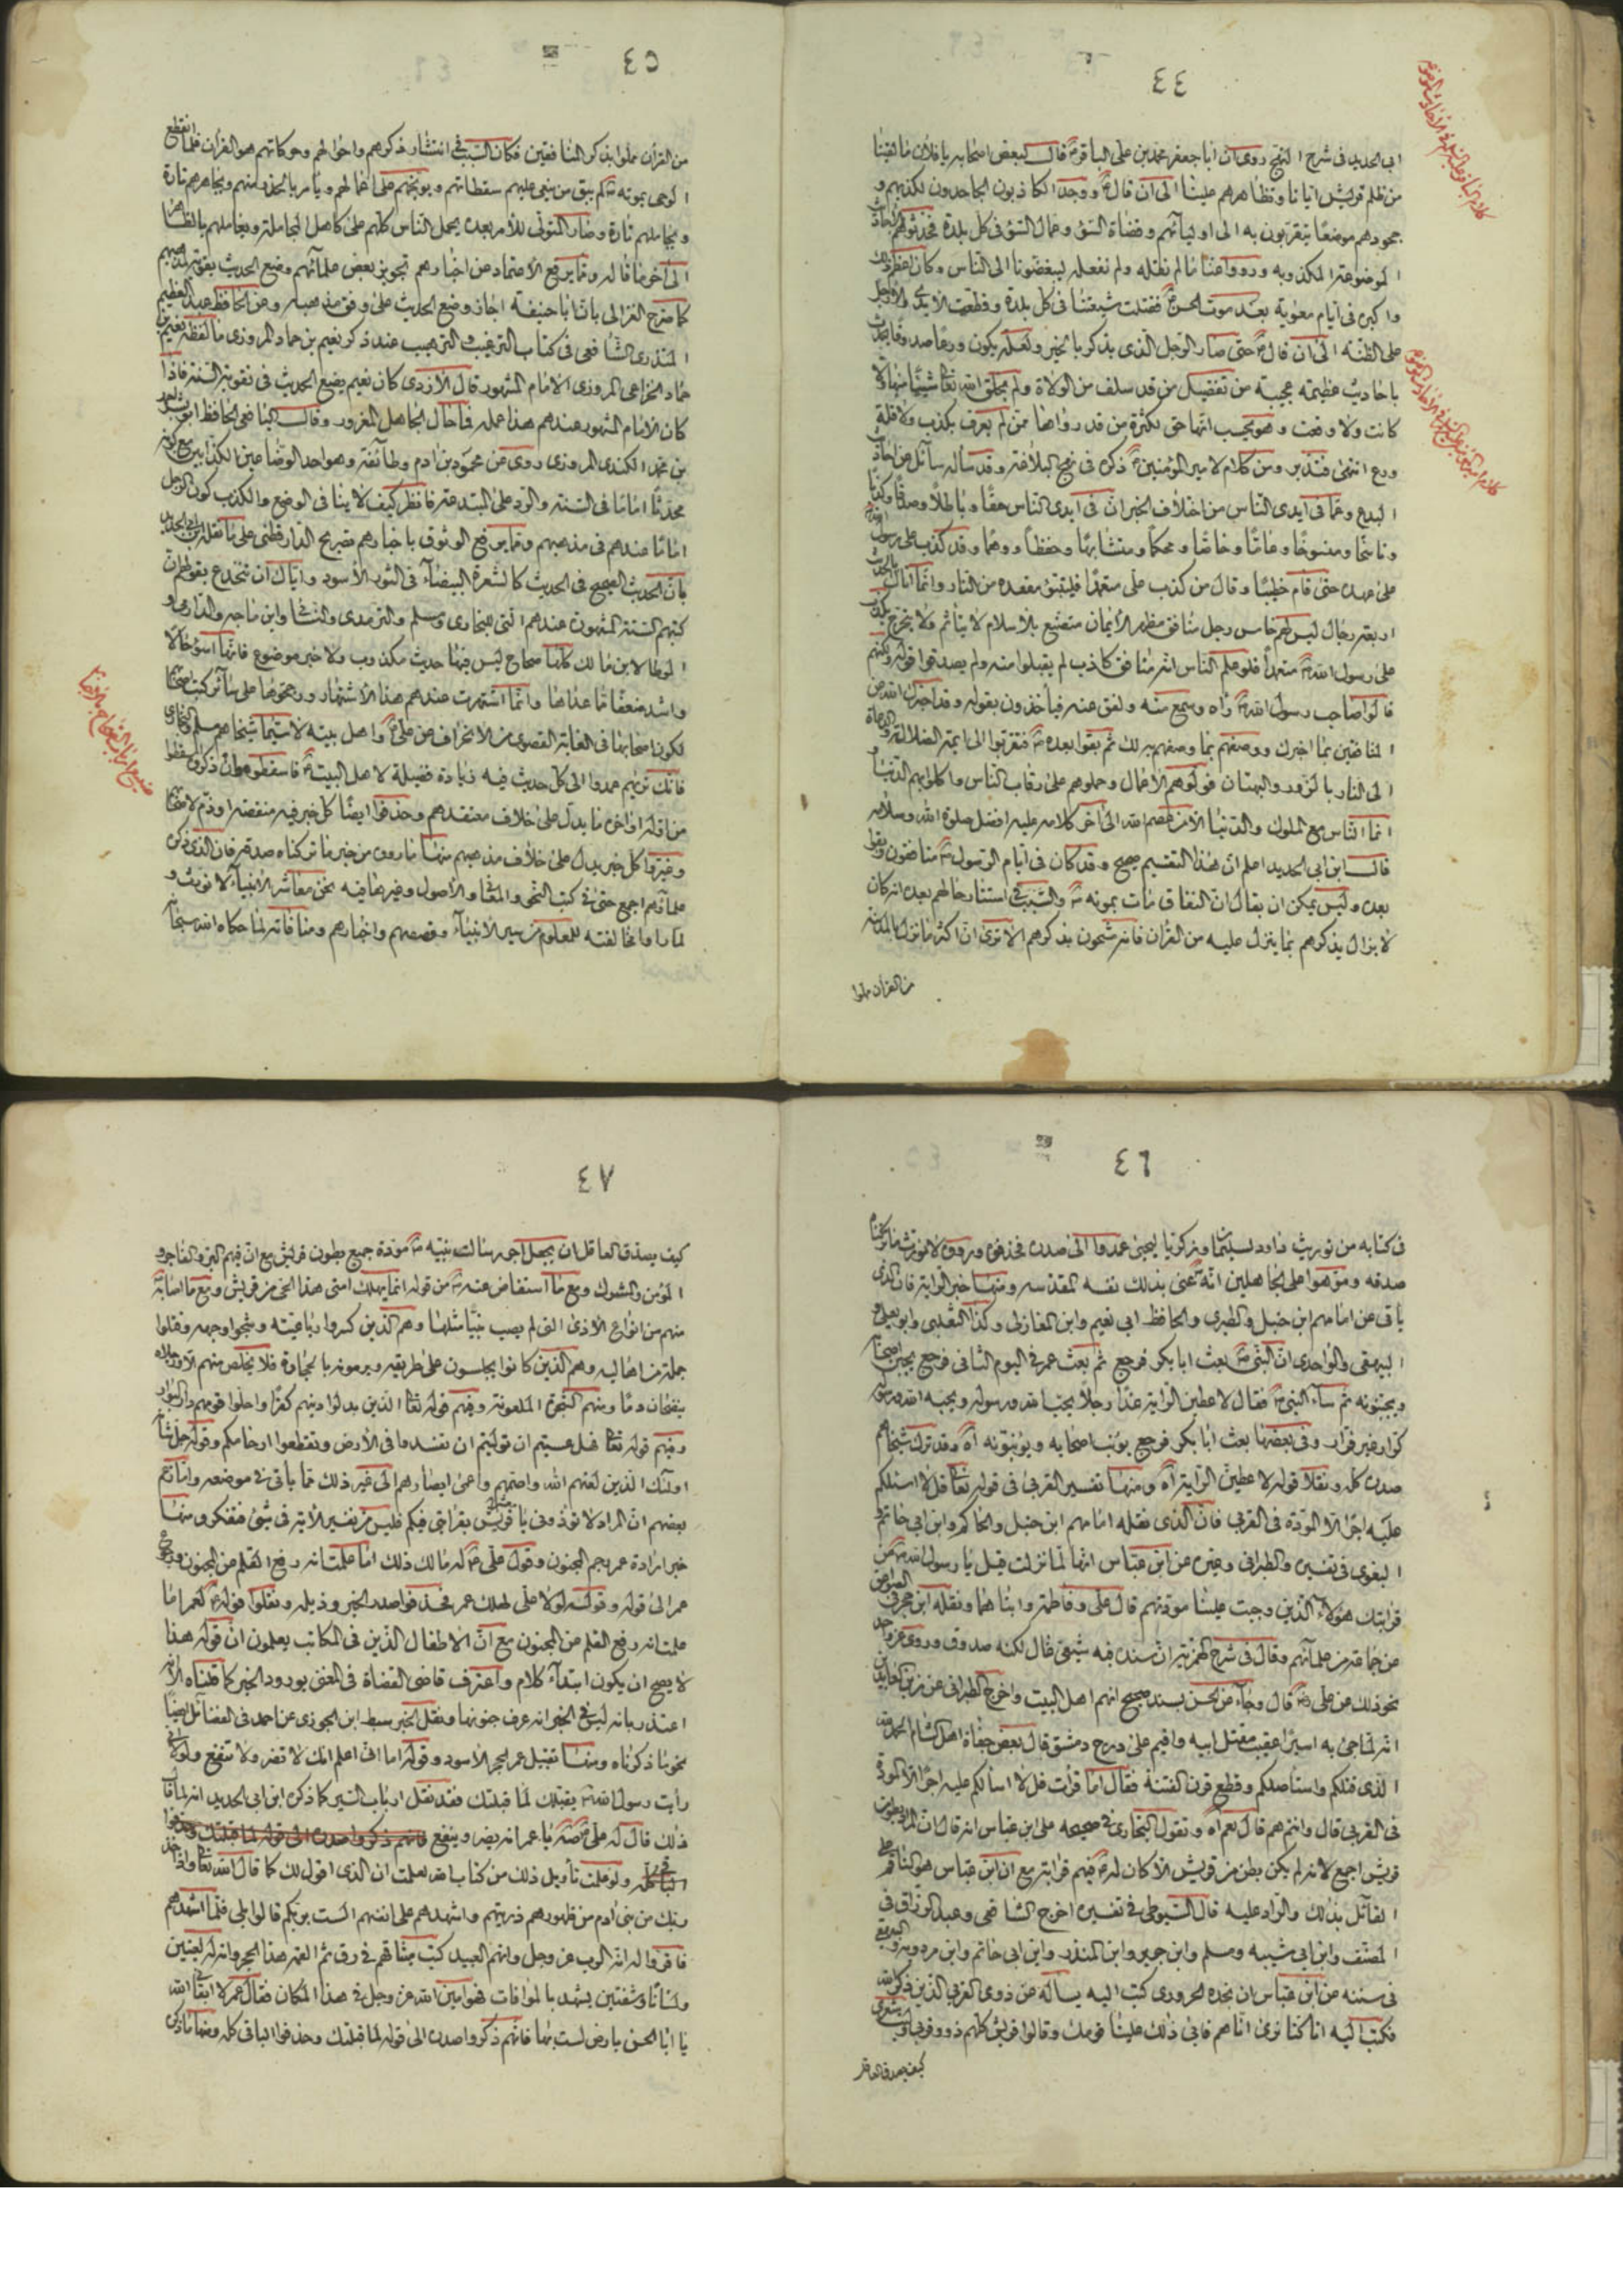 ٤٤
ابى الحديد فى شرح النهج روى ان ابا جعفر محمد بن على الباقر قال لبعض اصحابه يا فلان ما لقينا
من ظلم قريش ايانا وتظاهرهم علينا الى ان قال ووجد الكاذبون الجاحدون لكذبهم و
جحودهم موضعًا يتقربون به الى اوليائهم وقضاة السوء وعمال السوء فى كل بلدة فحدثوهم
الموضوعة المكذوبه ورووا عنا ما لم نقله ولم نفعله ليبغضونا الى الناس وكان عظم ذلك
واكبره فى ايام معوية بعد موت الحسن فقتلت شيعتنا فى كل بلدة وقطعت الايدى والارجل
على الظنه الى ان قال حتى صار الرجل الذى يذكر بالخير ولعله يكون ورعا صدوقا يحدث
باحاديث عظيمة عجيبة من تفضيل من قد سلف من الولاة ولم يخلق الله تعا شيئًا منها ولا
كانت ولا وقعت وهو يحسب انها حق لكثرة من قد رواها ممن لم يعرف بكذب ولا قلة
ورع انتهى فتدبر ومن كلام لامير المؤمنين ذكره فى نهج البلاغة وقد سأله سائل عن احاديث
البدع وعما فى ايدى الناس من اختلاف الخبر ان فى ايدى الناس حقًا وباطلًا وصدقًا وكذبًا
وناسخًا ومنسوخًا وعامًا وخاصًا ومحكمًا ومتشابهًا وحفظًا ووهمًا وقد كذب على رسول الله
على عهده حتى قام خطيبًا وقال من كذب على متعمدًا فليتبوء مقعده من النار وانما اتاك بالحديث
اربعة رجال ليس لهم خامس رجل منافق مظهر للايمان متصنع بالاسلام لا يتأثم ولا يتحرج يكذب
على رسول الله متعمدًا فلو علم الناس انه منافق كاذب لم يقبلوا منه ولم يصدقوا قوله ولكنهم
قالوا صاحب رسول الله رآه وسمع منه ولقف عنه فيأخذون بقوله وقد اخبرك الله عن
المنافقين بما اخبرك ووصفهم بما وصفهم به لك ثم بقوا بعده فتقربوا الى ائمة الضلالة والدعاة
الى النار بالزور والبهتان فولوهم الاعمال وحملوهم على رقاب الناس واكلوا بهم الدنيا و
انما الناس مع الملوك والدنيا الا من عصم الله الى آخر كلامه عليه افضل صلوة الله وسلامه
قال ابن ابى الحديد اعلم ان هذا التقسيم صحيح وقد كان فى ايام الرسول منافقون وبقوا
بعده وليس يمكن ان يقال ان النفاق مات بموته والسبب فى استتار حالهم بعده انه كان
لا يزال يذكرهم بما ينزل عليه من القران فانه مشحون بذكرهم الا ترى ان اكثر ما نزل بالمدينة
من القران مملوا
٤٥
من القرآن مملوا بذكر المنافقين فكان السبب فى انتشار ذكرهم واحوالهم وحركاتهم هو القرآن فلما انقطع
الوحى بموته لم يبق من ينعى عليهم سقطاتهم ويوبخهم على اعمالهم ويأمر بالحذر منهم ويجاهرهم تارة
ويجاملهم تارة وصار المتولى للأمر بعده يحمل الناس كلهم على كاهل المجاملة ويعاملهم بالظاهر
الى آخر ما قاله ومما يرفع الاعتماد عن اخبارهم تجويز بعض علمائهم وضع الحديث
كما صرح الغزالى بان ابا حنيفة اجاز وضع الحديث على وفق مذهبه وعن الحافظ عبد العظيم
المنذرى الشافعى فى كتاب الترغيب والترهيب عند ذكر نعيم بن حماد المروزى ما لفظه نعيم بن
حماد الخزاعى المروزى الامام المشهور قال الازدى كان نعيم يضع الحديث فى تقوية السنة فاذا
كان الامام المشهور عندهم هذا عمله فما حال الجاهل المغرور وقال اليافعى الحافظ ابو بشر احمد
بن محمد الكندى المروزى روى عن محمود بن ادم وطائفة وهو احد الوضاعين الكذابين مع كونه
محدثًا امامًا فى السنة والرد على المبتدعة فانظر كيف لا ينافى الوضع والكذب كون الرجل
امامًا عندهم فى مذهبهم ومما يرفع الوثوق باخبارهم تصريح الدارقطنى على ما نقله ابن ابى الحديد
بان الحديث الصحيح فى الحديث كالشعرة البيضاء فى الثور الأسود واياك ان تنخدع بقولهم ان
كتبهم الستة المشهورة عندهم التى للبخارى ومسلم والترمذى والنسائى وابن ماجه والدارمى و
الموطا لابن مالك كلها صحاح ليس فيها حديث مكذوب ولا خبر موضوع فانها اسوء حالا
واشد ضعفًا مما عداها وانما اشتهرت عندهم هذا الاشتهار ورجحوها على سائر كتب صحاحها
لكون اصحابها فى الغاية القصوى من الانحراف عن على واهل بيته لا سيما شيخاهم مسلم والبخارى
فانك تريهم عمدوا الى كل حديث فيه زيادة فضيلة لاهل البيت فاسقطوه وان ذكروه اسقطوا
من اوله او اخره ما يدل على خلاف معتقدهم وحذفوا ايضًا كل خبر فيه منقصة او ذم لائمتهم
وغيروا كل خبر يدل على خلاف مذهبهم منها ما روى من خبر ما تركناه صدقة فان الذى ذكره
علمائهم اجمع حتى فى كتب النحو والمعانى والاصول وغيرها فيه نحن معاشر الانبياء لا نورث و
لما راوا مخالفته للمعلوم من سير الانبياء وقصصهم واخبارهم ومنافاته لما حكاه الله سبحانه
٤٦
فى كتابه من توريث داود لسليمان وزكريا ليحيى عمدوا الى صدره فحذفوه ورووه لا نورث ما تركناه
صدقه وموهوا على الجاهلين انه عنى بذلك نفسه المقدسه ومنها خبر الراية فان الذى
يأتى عن امامهم ابن حنبل والطبرى والحافظ ابى نعيم وابن المغازلى وكذا الثعلبى وابو يعلى و
البيهقى والواحدى ان النبى بعث ابا بكر فرجع ثم بعث عمر فى اليوم الثانى فرجع يجبن اصحابه
ويجبنونه ثم ساء النبى فقال لاعطين الراية غدًا رجلًا يحب الله ورسوله ويحبه الله ورسوله
كرار غير فرار وفى بعضها بعث ابا بكر فرجع يؤنب اصحابه ويؤنبونه آه وقد ترك شيخاهم
صدره كله ونقلا قوله لاعطين الراية آه ومنها تفسير القربى فى قوله تعا قل لا اسئلكم
عليه اجرًا الا المودة فى القربى فان الذى نقله امامهم ابن حنبل والحاكم وابن ابى حاتم و
البغوى فى تفسيره والطبرانى وغيره عن ابن عباس انها لما نزلت قيل يا رسول الله من
قرابتك هؤلاء الذين وجبت علينا مودتهم قال على وفاطمة وابناهما ونقله ابن حجر فى الصواعق
عن جماعة من علمائهم وقال فى شرح الهمزية ان سنده فيه شيعى قال لكنه صدوق وروى عن
نحو ذلك عن على قال وجاء عن الحسن بسند صحيح انهم اهل البيت واخرج الطبرانى عن زين العابدين
انه لما جئ به اسيرًا عقيب مقتل ابيه واقيم على درج دمشق قال بعض جفاة اهل الشام الحمد لله
الذى قتلكم واستاصلكم وقطع قرن الفتنة فقال اما قرأت قل لا اسألكم عليه اجرًا الا المودة
فى القربى قال وانتم هم قال نعم آه وتقول البخارى فى صحيحه على ابن عباس انه قال ان المراد بطون
قريش اجمع لانه لم يكن بطن من قريش الا كان له فيهم قرابة مع ان ابن عباس هو الناقم على
القائل بذلك والراد عليه قال السيوطى فى تفسيره اخرج الشافعى وعبد الرزاق فى
المصنف وابن ابى شيبه ومسلم وابن جرير وابن المنذر وابن ابى حاتم وابن مردويه والبيهقى
فى سننه عن ابن عباس ان نجده الحرورى كتب اليه يسأله عن ذوى القربى الذين ذكر الله
فكتب اليه انا كنا نرى انا هم فابى ذلك علينا قومنا وقالوا قريش كلهم ذوو قربى
كيف يصدق العاقل
٤٧
كيف يصدق العاقل ان يجعل اجر رسالت نبيه مودة جميع بطون قريش مع ان فيهم البر والفاجر و
المؤمن والمشرك ومع ما استفاض عنه من قوله انما يهلك امتى هذا الحى من قريش ومع ما اصابه
منهم من انواع الاذى التى لم يصب نبيًا مثلها وهم الذين كسروا رباعيته وشجوا وجهه وقتلوا
جملة من اهاليه وهم الذين كانوا يجلسون على طريقه ويرمونه بالحجارة فلا يخلص منهم الا ورجلاه
ينضحان دمًا ومنهم الشجرة الملعونة وفيهم قوله تعا الذين بدلوا دينهم كفرًا واحلوا قومهم دار البوار
وفيهم قوله تعا فهل عسيتم ان توليتم ان تفسدوا فى الأرض وتقطعوا ارحامكم وقوله جل شأنه
اولئك الذين لعنهم الله واصمهم واعمى ابصارهم الى غير ذلك مما يأتى فى موضعه واما زعم
بعضهم ان المراد لا تؤذونى يا قريش بقرابتى فيكم فليس من تفسير الآية فى شئ فتفكر ومنها
خبر ارادة عمر رجم المجنون وقول على له مالك ذلك اما علمت انه رفع القلم عن المجنون ورجوع
عمر الى قوله وقوله لولا على لهلك عمر فحذفوا صدر الخبر وذيله ونقلوا قوله لعمر اما
علمت انه رفع القلم عن المجنون مع ان الاطفال الذين فى المكاتب يعلمون ان قوله هذا
لا يصح ان يكون ابتداء كلام واعترف قاضى القضاة فى المغنى بورود الخبر كما قلناه الا انه
اعتذر بانه ليس فى الخبر انه عرف جنونها ونقل الخبر سبط ابن الجوزى عن احمد فى الفضائل ايضًا
نحو ما ذكرناه ومنها تقبيل عمر الحجر الأسود وقوله اما انى اعلم انك لا تضر ولا تنفع ولولا انى
رأيت رسول الله يقبلك لما قبلتك فقد نقل ارباب السير كما ذكره ابن ابى الحديد انه لما قال
ذلك قال له على مه يا عمر انه يضر وينفع فانهم ذكروا صدره الى قوله لما قبلتك وحذفوا
الباقى كله ولو علمت تأويل ذلك من كتاب الله لعلمت ان الذى اقول لك كما قال الله تعا واذ اخذ
ربك من بنى ادم من ظهورهم ذريتهم واشهدهم على انفسهم الست بربكم قالوا بلى فلما اشهدهم
فاقروا له انه الرب عز وجل وانهم العبيد كتب ميثاقهم فى رق ثم القمه هذا الحجر وانه له لعينين
ولسانًا وشفتين يشهد بالموافات فهو امين الله عز وجل فى هذا المكان فقال عمر لا ابقانى الله
يا ابا الحسن بارض لست بها فانهم ذكروا صدره الى قوله لما قبلتك وحذفوا الباقى كله ومنها ما ذكره